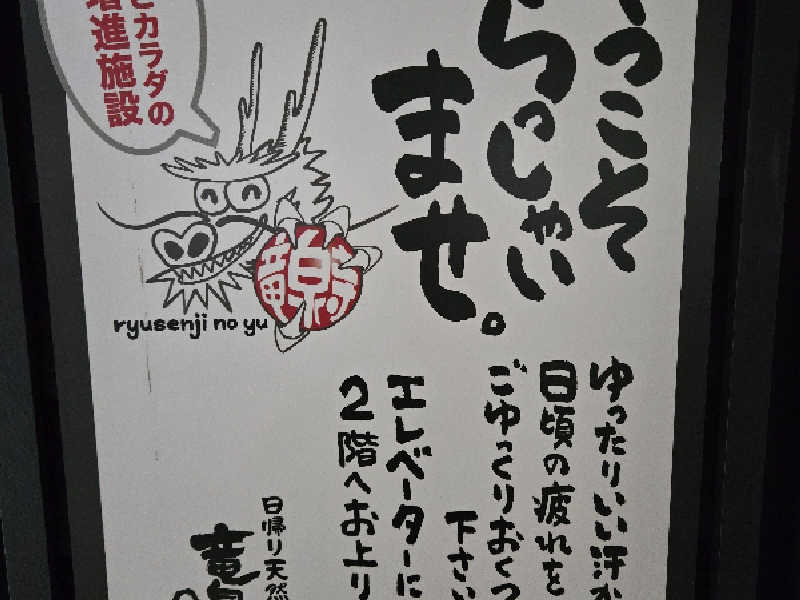 うこそ
らっしゃい
ませ。
とカラダの
増進施設
竜泉
ryusenji no yu
ゆったりいい汗か
日頃の疲れを
ごゆっくりおくつ
下さい
エレベーターに
2階へお上り
日帰り天然
竜泉